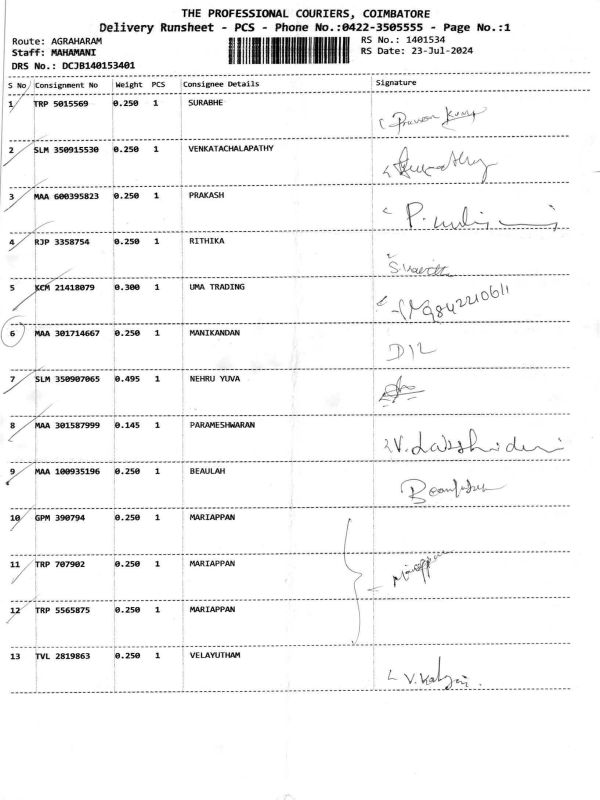 THE PROFESSIONAL COURIERS, COIMBATORE
Delivery Runsheet - PCS - Phone No.:0422-3505555 - Page No.:1
Route: AGRAHARAM RS No.: 1401534
Staff: MAHAMANI RS Date: 23-Jul-2024
DRS No.: DCJB140153401
S No Consignment No Weight PCS Consignee Details Signature
1 TRP 5015569 0.250 1 SURABHE
2 SLM 350915530 0.250 1 VENKATACHALAPATHY
3 MAA 600395823 0.250 1 PRAKASH
4 RJP 3358754 0.250 1 RITHIKA
5 KCM 21418079 0.300 1 UMA TRADING 9842210611
6 MAA 301714667 0.250 1 MANIKANDAN D12
7 SLM 350907065 0.495 1 NEHRU YUVA
8 MAA 301587999 0.145 1 PARAMESHWARAN
9 MAA 100935196 0.250 1 BEAULAH
10 GPM 390794 0.250 1 MARIAPPAN
11 TRP 707902 0.250 1 MARIAPPAN Mariappan
12 TRP 5565875 0.250 1 MARIAPPAN
13 TVL 2819863 0.250 1 VELAYUTHAM